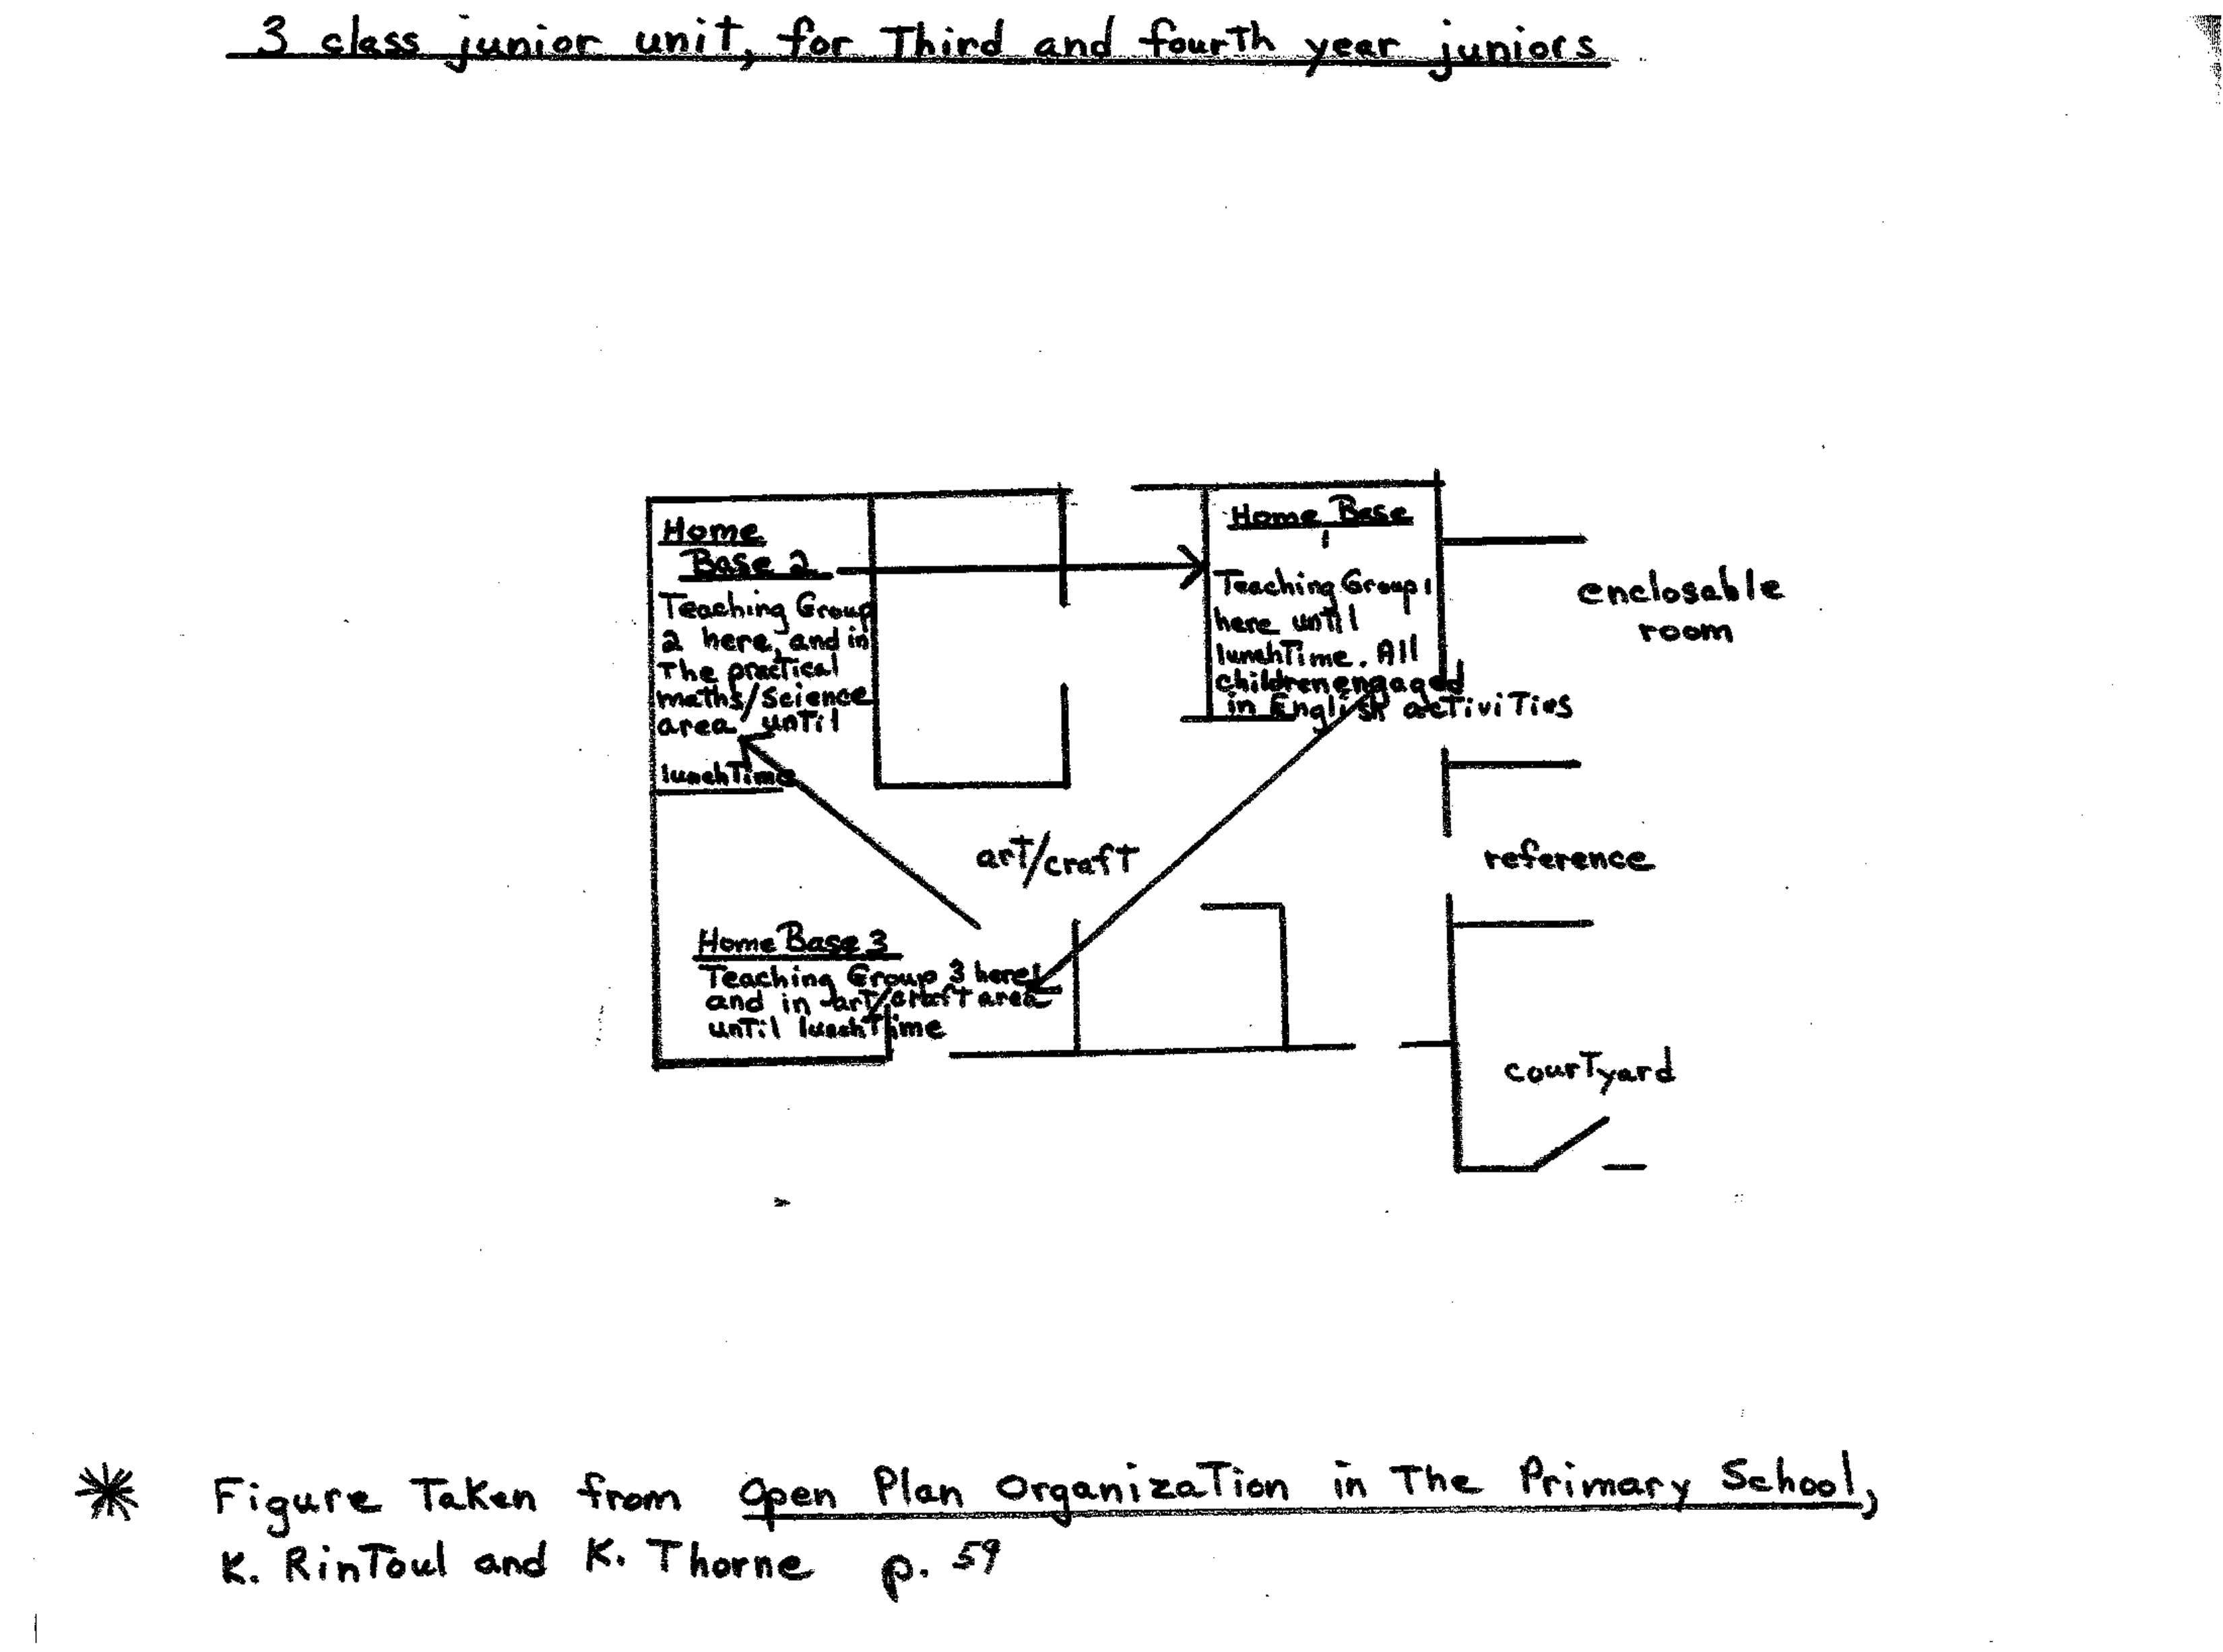 3 class junior unit, for Third and fourth year juniors
Home
Base 2
Teaching Group
2 here, and in
The practical
maths/science
area, until
lunchTime
Home Base
1
Teaching Group 1
here until
lunchTime. All
children engaged
in English activities
enclosable
room
art/craft
reference
Home Base 3
Teaching Group 3 here
and in art/craft area
until lunchTime
courtyard
* Figure Taken from Open Plan Organization in The Primary School,
K. Rintoul and K. Thorne p. 59